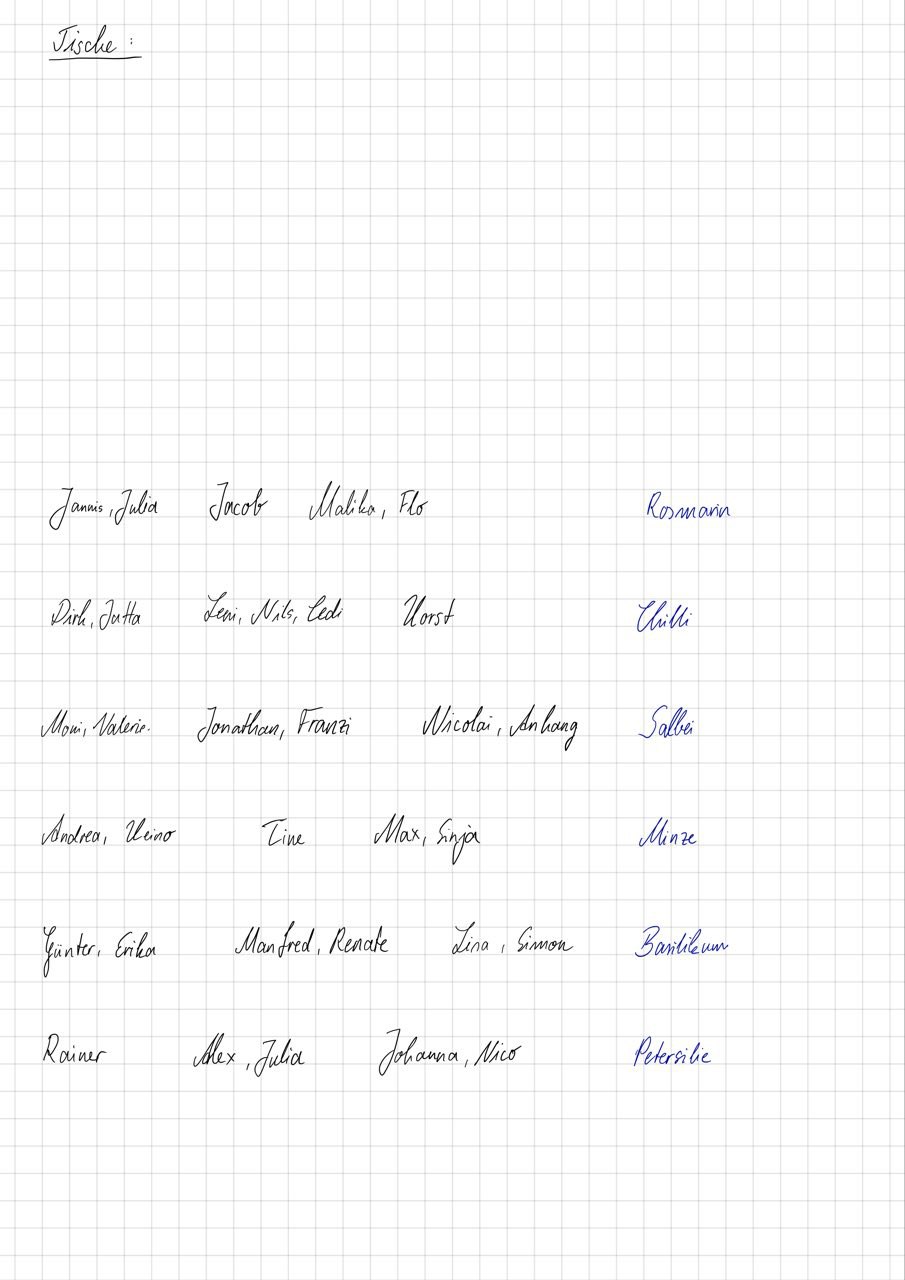 Tische :
Jannis, Julia Jacob Malika, Flo Rosmarin
Dirk, Jutta Leni, Nils, Cedi Horst Chilli
Moni, Valerie. Jonathan, Franzi Nicolai, Anhang Salbei
Andrea, Heino Tine Max, Sinja Minze
Günter, Erika Manfred, Renate Lina, Simon Basilikum
Rainer Alex, Julia Johanna, Nico Petersilie